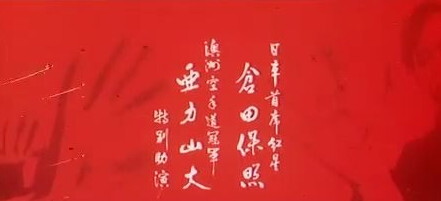 日本首席紅星
倉田保照
澳洲空手道冠軍
亜力山大
特別助演